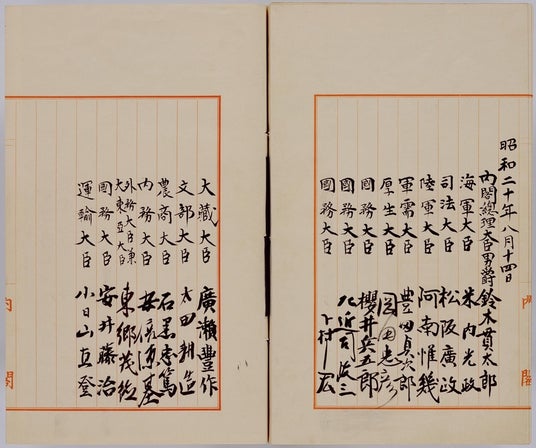 昭和二十年八月十四日
内閣總理大臣男爵 鈴木貫太郎
海軍大臣 米内光政
司法大臣 松阪廣政
陸軍大臣 阿南惟幾
軍需大臣 豊田貞次郎
厚生大臣 岡田忠彦
國務大臣 櫻井兵五郎
國務大臣 左近司政三
國務大臣 下村宏
大藏大臣 廣瀬豐作
文部大臣 太田耕造
農商大臣 石黒忠篤
内務大臣 安倍源基
外務大臣兼
大東亞大臣 東郷茂徳
國務大臣 安井藤治
運輸大臣 小日山直登
内閣